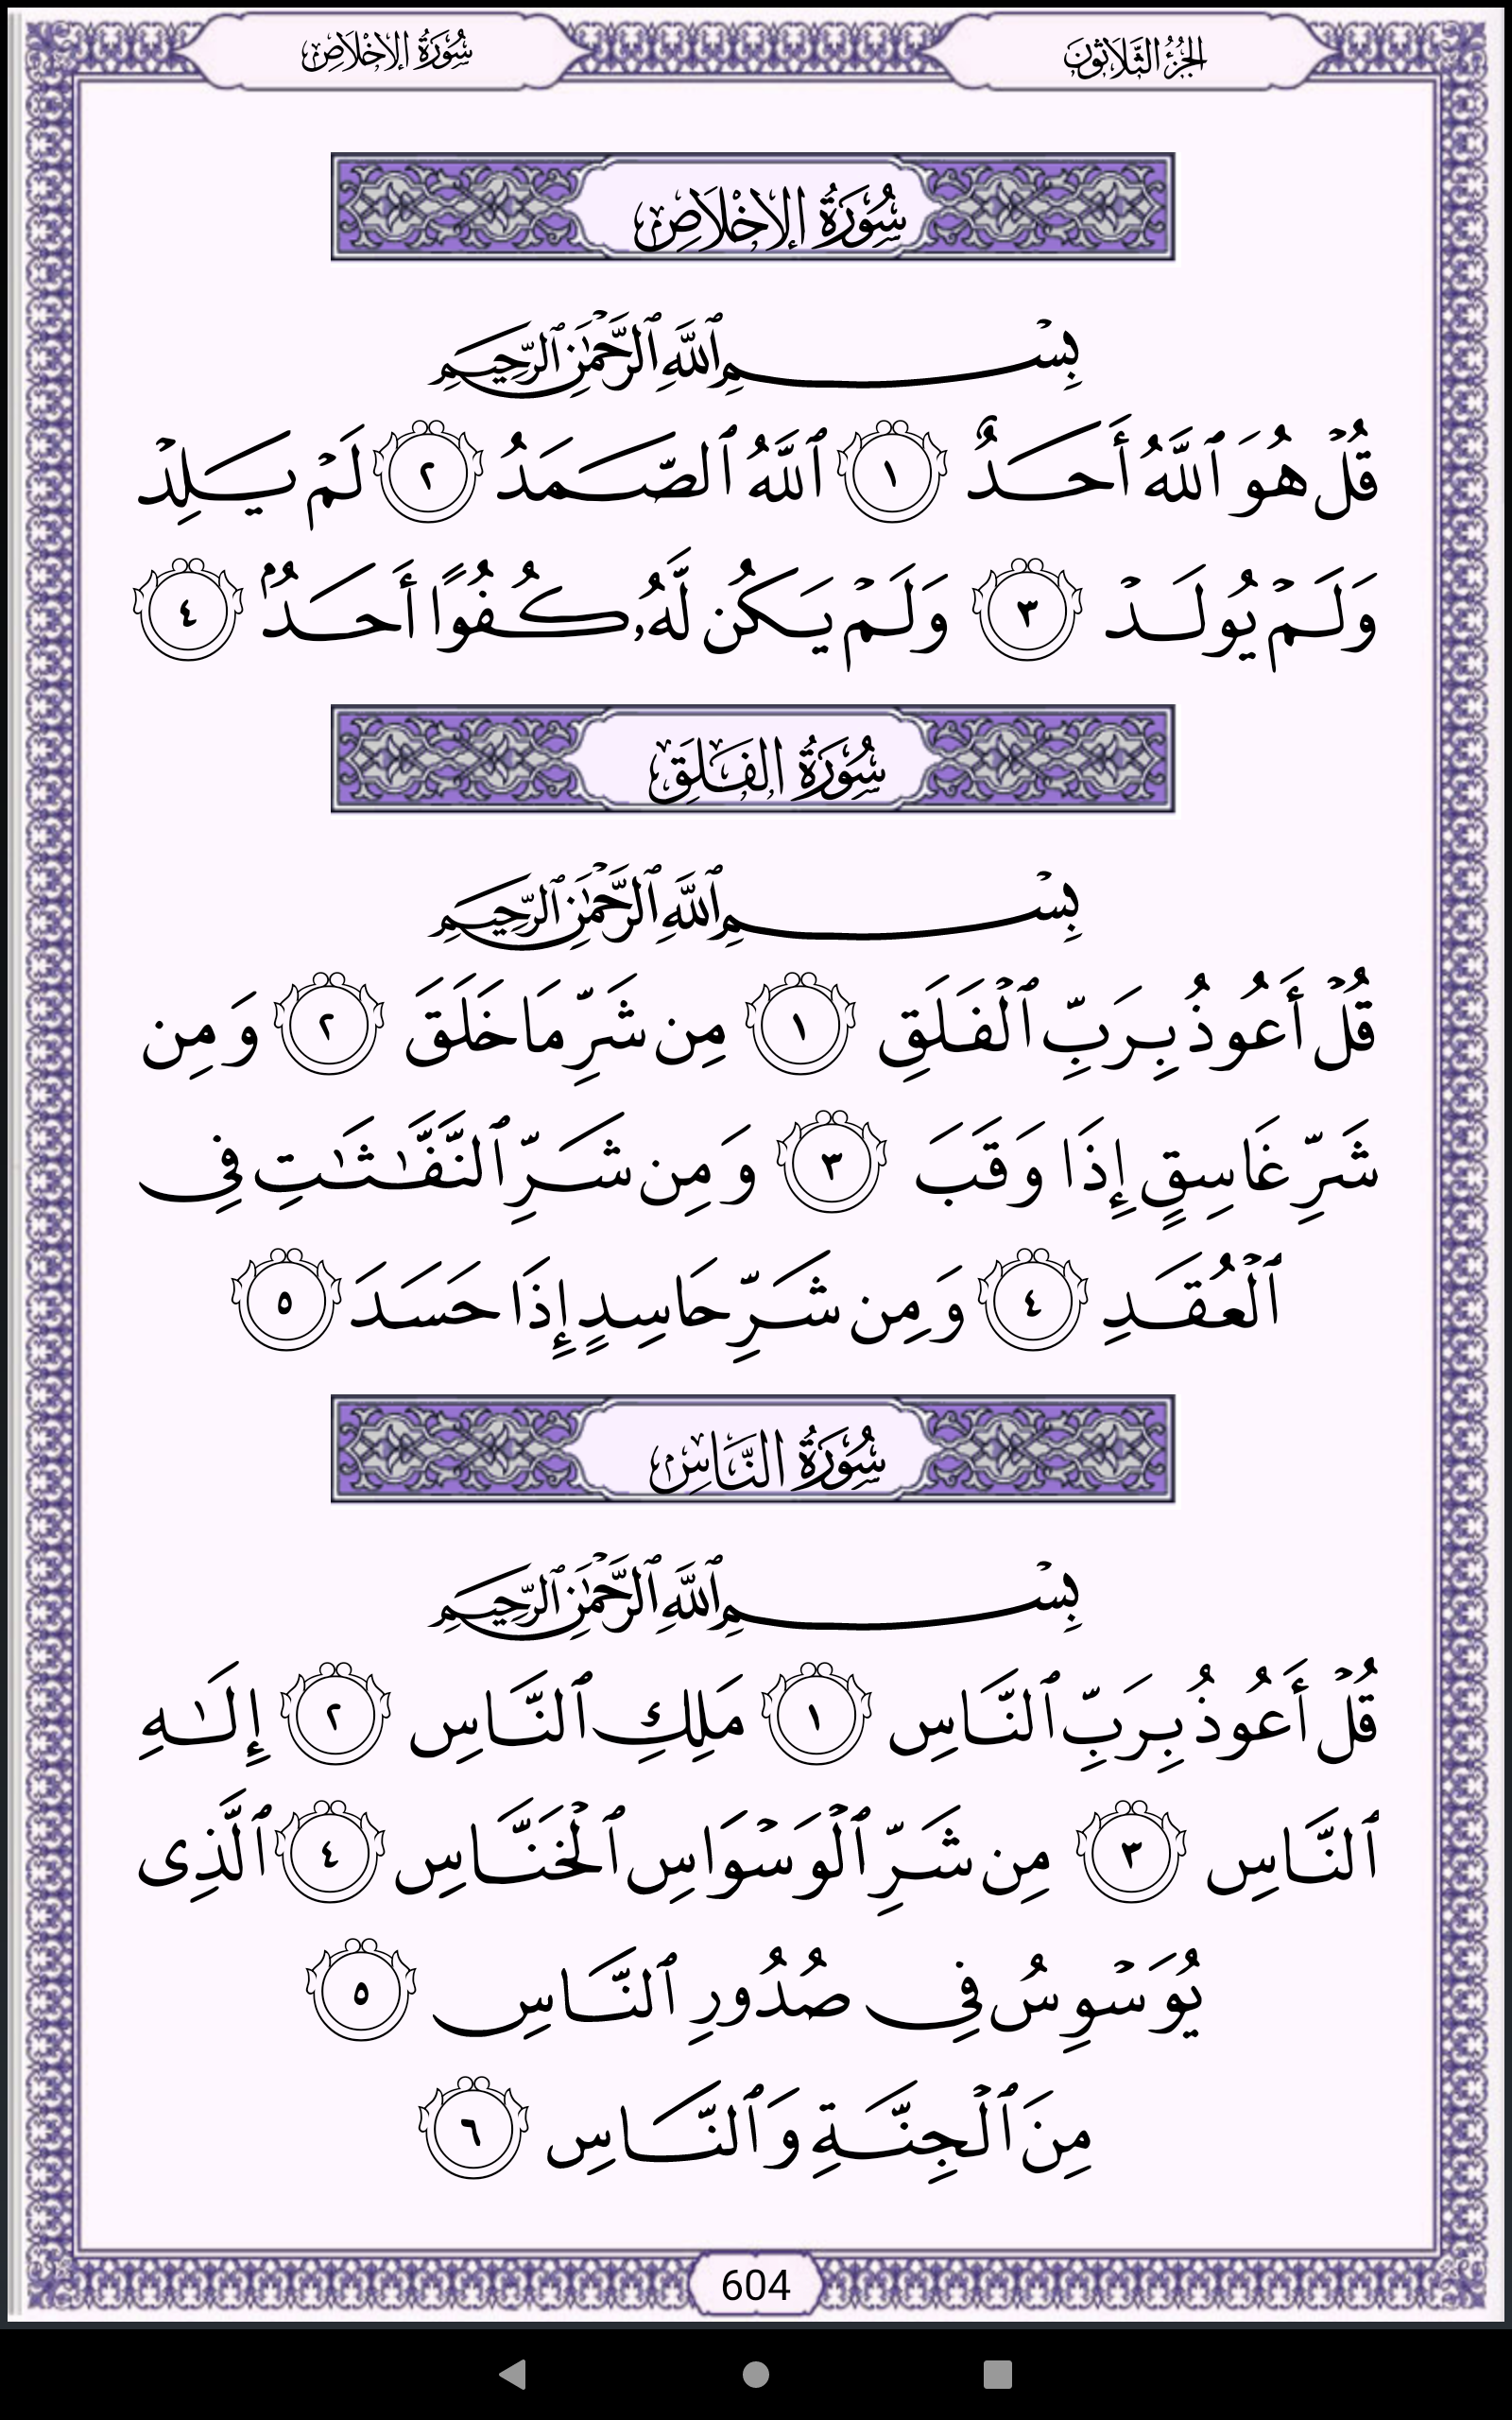 الجزء الثلاثون
سورة الإخلاص
سُورَةُ الإِخْلَاصِ
بِسْمِ ٱللَّهِ ٱلرَّحْمَٰنِ ٱلرَّحِيمِ
قُلْ هُوَ ٱللَّهُ أَحَدٌ ١ ٱللَّهُ ٱلصَّمَدُ ٢ لَمْ يَلِدْ
وَلَمْ يُولَدْ ٣ وَلَمْ يَكُن لَّهُۥ كُفُوًا أَحَدٌۢ ٤
سُورَةُ الفَلَقِ
بِسْمِ ٱللَّهِ ٱلرَّحْمَٰنِ ٱلرَّحِيمِ
قُلْ أَعُوذُ بِرَبِّ ٱلْفَلَقِ ١ مِن شَرِّ مَا خَلَقَ ٢ وَمِن
شَرِّ غَاسِقٍ إِذَا وَقَبَ ٣ وَمِن شَرِّ ٱلنَّفَّٰثَٰتِ فِى
ٱلْعُقَدِ ٤ وَمِن شَرِّ حَاسِدٍ إِذَا حَسَدَ ٥
سُورَةُ النَّاسِ
بِسْمِ ٱللَّهِ ٱلرَّحْمَٰنِ ٱلرَّحِيمِ
قُلْ أَعُوذُ بِرَبِّ ٱلنَّاسِ ١ مَلِكِ ٱلنَّاسِ ٢ إِلَٰهِ
ٱلنَّاسِ ٣ مِن شَرِّ ٱلْوَسْوَاسِ ٱلْخَنَّاسِ ٤ ٱلَّذِى
يُوَسْوِسُ فِى صُدُورِ ٱلنَّاسِ ٥
مِنَ ٱلْجِنَّةِ وَٱلنَّاسِ ٦
604